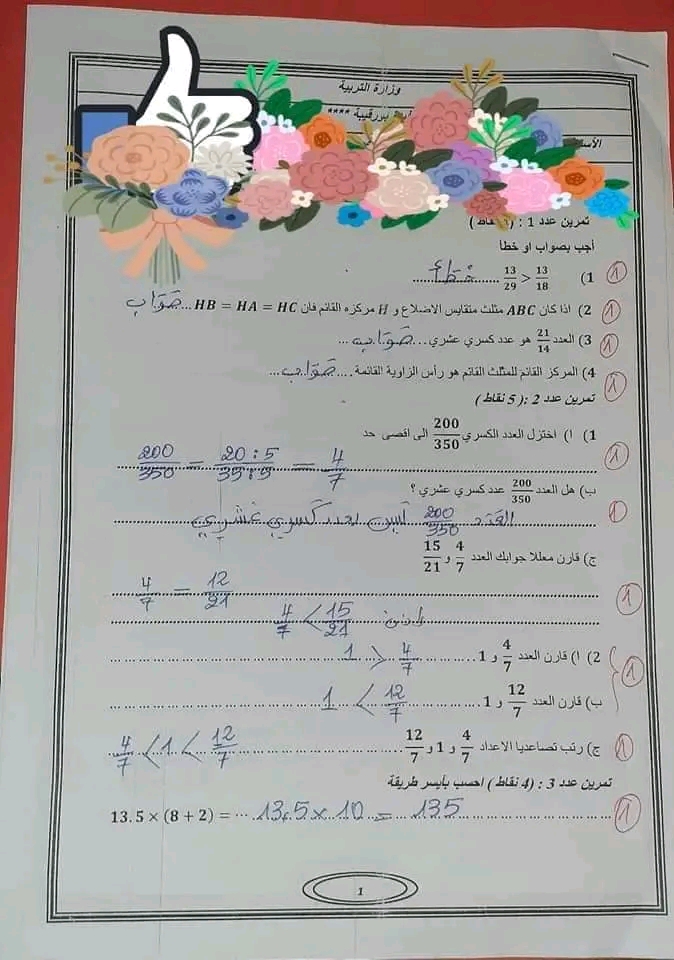 وزارة التربية
بورقيبة ****
تمرين عدد 1 : ( نقاط)
أجب بصواب او خطأ
1) 13/29 > 13/18 ............ خطأ
2) اذا كان ABC مثلث متقايس الاضلاع و H مركزه القائم فان HB = HA = HC ... صَوَاب
3) العدد 21/14 هو عدد كسري عشري ... صَوَاب ...
4) المركز القائم للمثلث القائم هو رأس الزاوية القائمة .... صَوَاب ...
تمرين عدد 2 : ( 5 نقاط )
1) ا) اختزل العدد الكسري 200/350 الى اقصى حد
200/350 = 20 : 5/35 : 5 = 4/7
ب) هل العدد 200/350 عدد كسري عشري ؟
العَدَد 200/350 ليس بعدد كسري عشري
ج) قارن معللا جوابك العدد 4/7 و 15/21
4/7 = 12/21
إذن 4/7 < 15/21
2) ا) قارن العدد 4/7 و 1 ............ 1 > 4/7
ب) قارن العدد 12/7 و 1 ............ 1 < 12/7
ج) رتب تصاعديا الاعداد 4/7 و 1 و 12/7 ............ 4/7 < 1 < 12/7
تمرين عدد 3 : ( 4 نقاط ) احسب بأيسر طريقة
13.5 × (8 + 2) = ... 13.5 × 10 = ... 135
1